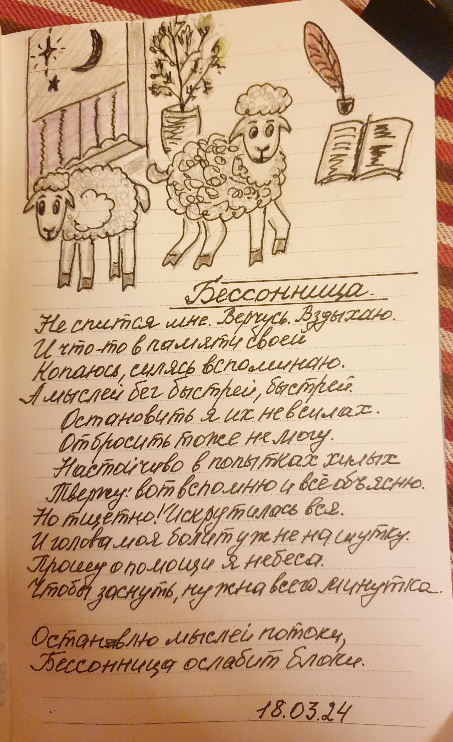 Бессонница.
Не спится мне. Верчусь. Вздыхаю.
И что-то в памяти своей
Копаюсь, силясь вспоминаю.
А мыслей бег быстрей, быстрей.
Остановить я их не в силах.
Отбросить тоже не могу.
Настойчиво в попытках хилых
Твержу: вот вспомню и всё объясню.
Но тщетно! Искрутилась вся.
И голова моя болит уж не на шутку.
Прошу о помощи я небеса.
Чтобы заснуть, нужна всего минутка.
Остановлю мыслей потоки,
Бессонница ослабит блоки.
18.03.24